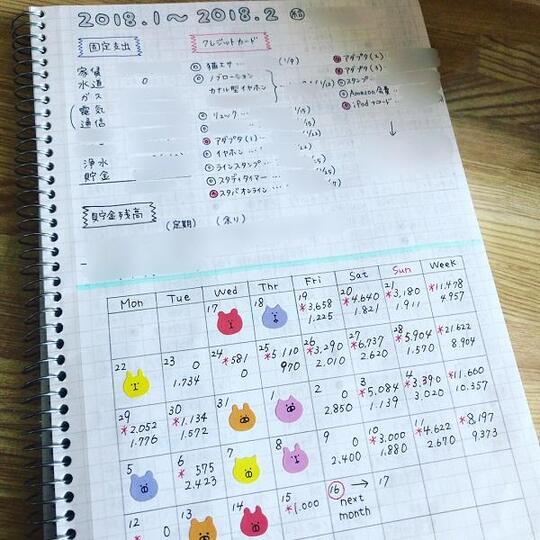 2018.1～2018.2
固定支出
クレジットカード
家賃
水道 0
ガス
電気
通信
浄水
貯金
猫エサ… (1/9)
ノブローション
カナル型イヤホン
リュック…
アダプタ(1)…
イヤホン…
ラインスタンプ…
スタディタイマー…
スタバオンライン…
アダプタ(2)
アダプタ(3)
スタンプ
Amazon会費
iPodコード
↓
貯金残高
(定期) (余り)
Mon Tue Wed Thr Fri Sat Sun Week
17 18 19 20 21
*3,658 *4,640 *3,180 *11,478
1,225 1,821 1,911 4,957
22 23 24 25 26 27 28
0 *581 *5,110 *3,290 *6,737 *5,904 *21,622
1,734 0 970 2,010 2,620 1,570 8,904
29 30 31 1 2 3 4
*2,052 *1,134 0 *5,084 *3,390 *11,660
1,776 1,572 2,850 1,139 3,020 10,357
5 6 7 8 9 10 11
*575 0 *3,000 *4,622 *8,197
2,423 2,400 1,880 2,670 9,373
12 13 14 15 16 → 17
* 0 *1,000 next
month